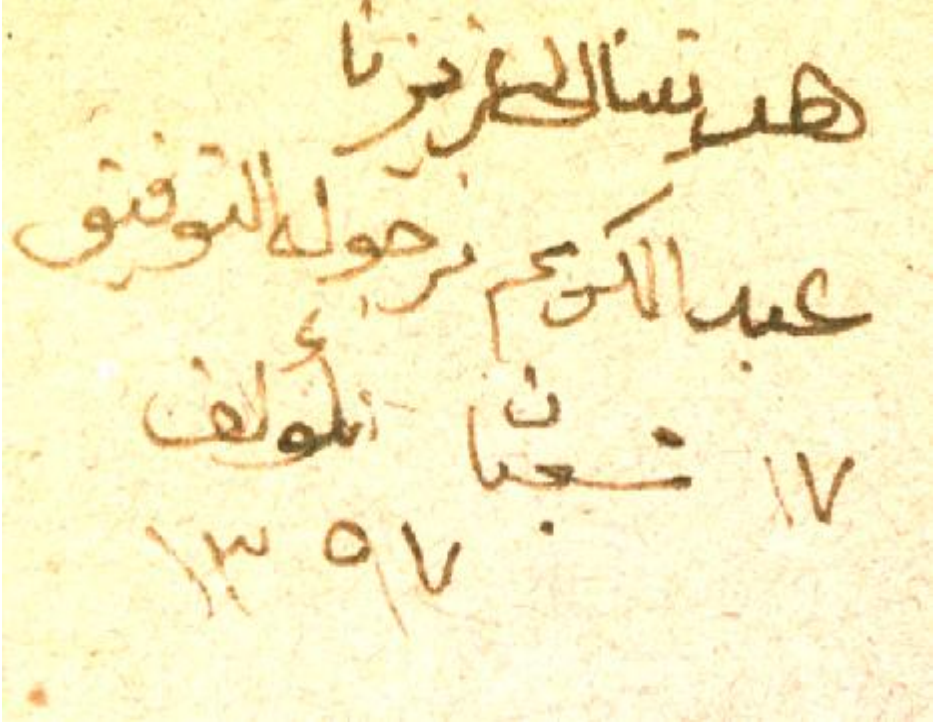 هديتنا الى عزيزنا
عبدالكريم نرجو له التوفيق
١٧ شعبان المؤلف
١٣٥٧